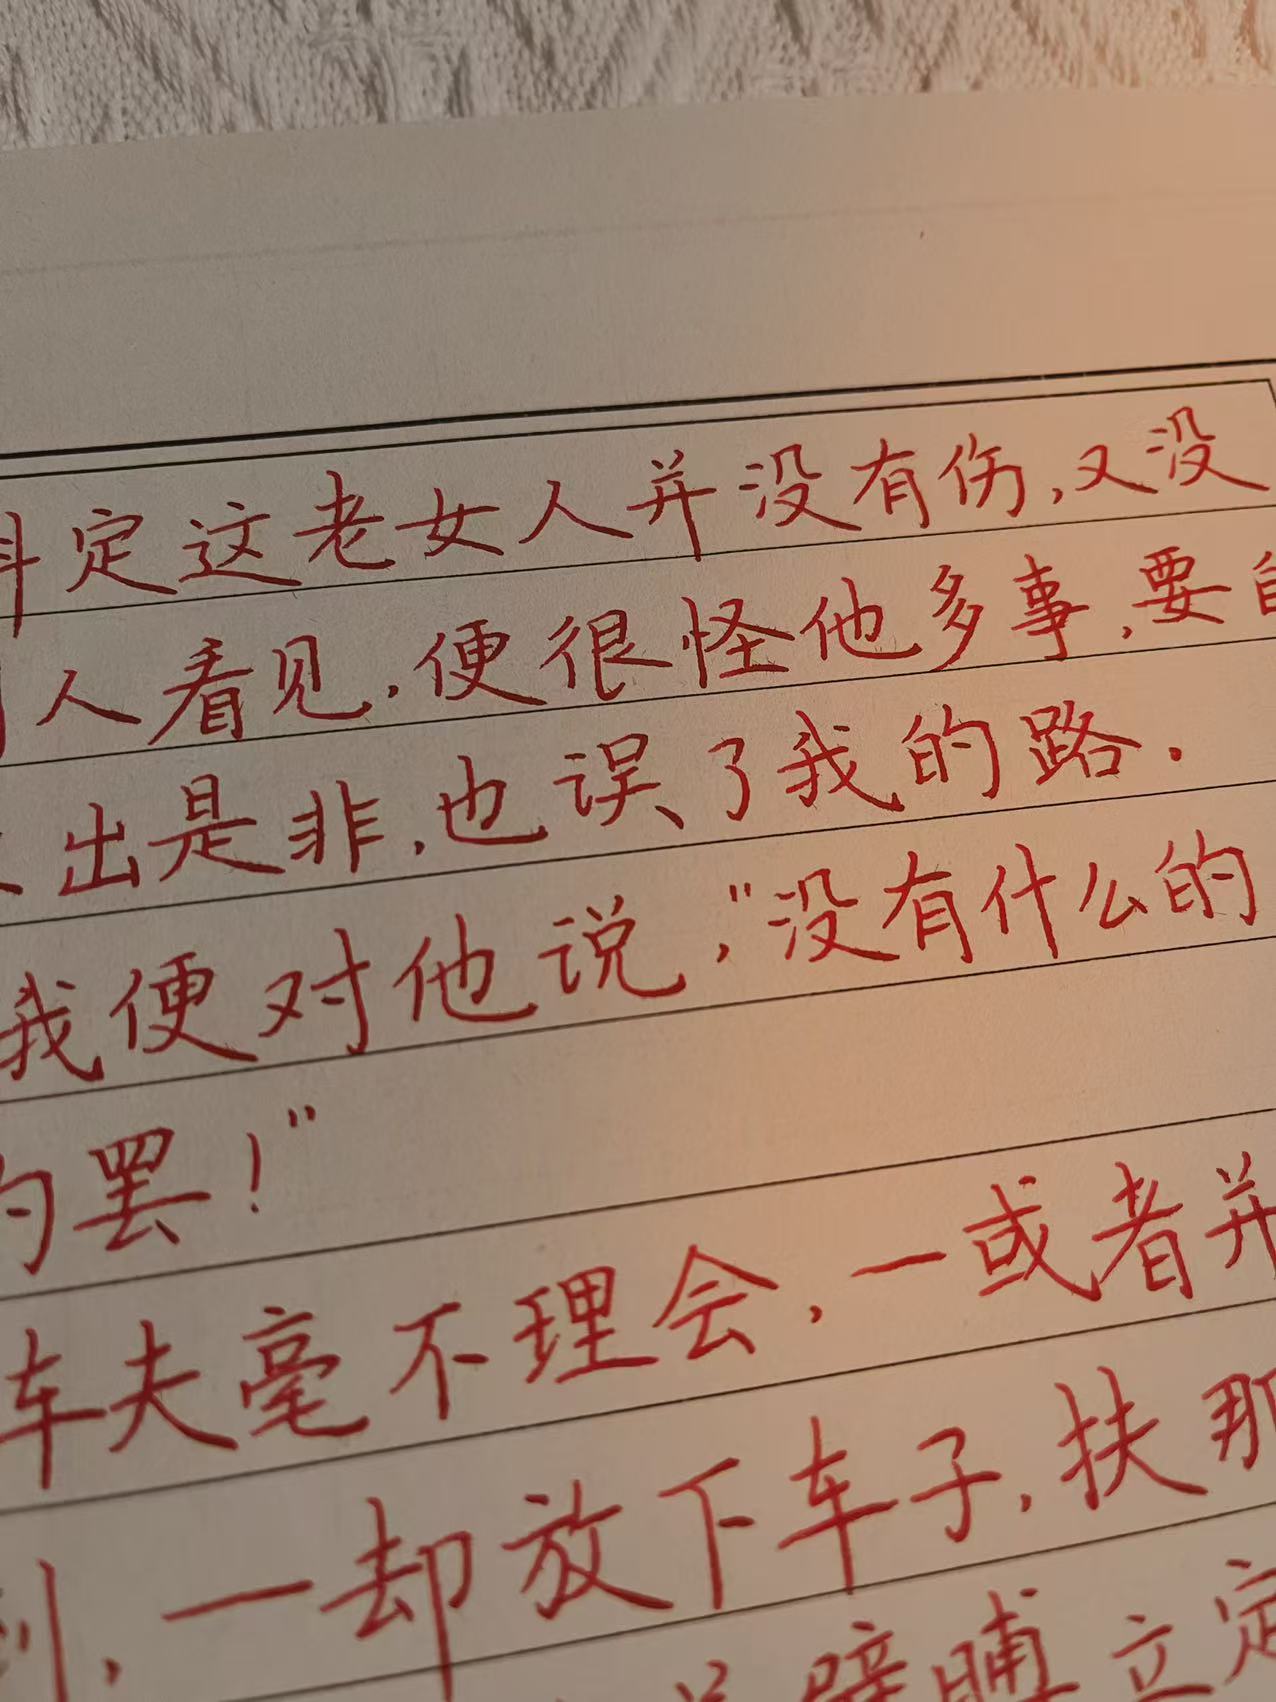 料定这老女人并没有伤,又没
人看见,便很怪他多事,要自
出是非,也误了我的路.
我便对他说,"没有什么的
的罢!"
车夫毫不理会,一或者并
到,一却放下车子,扶那
臂膊立定